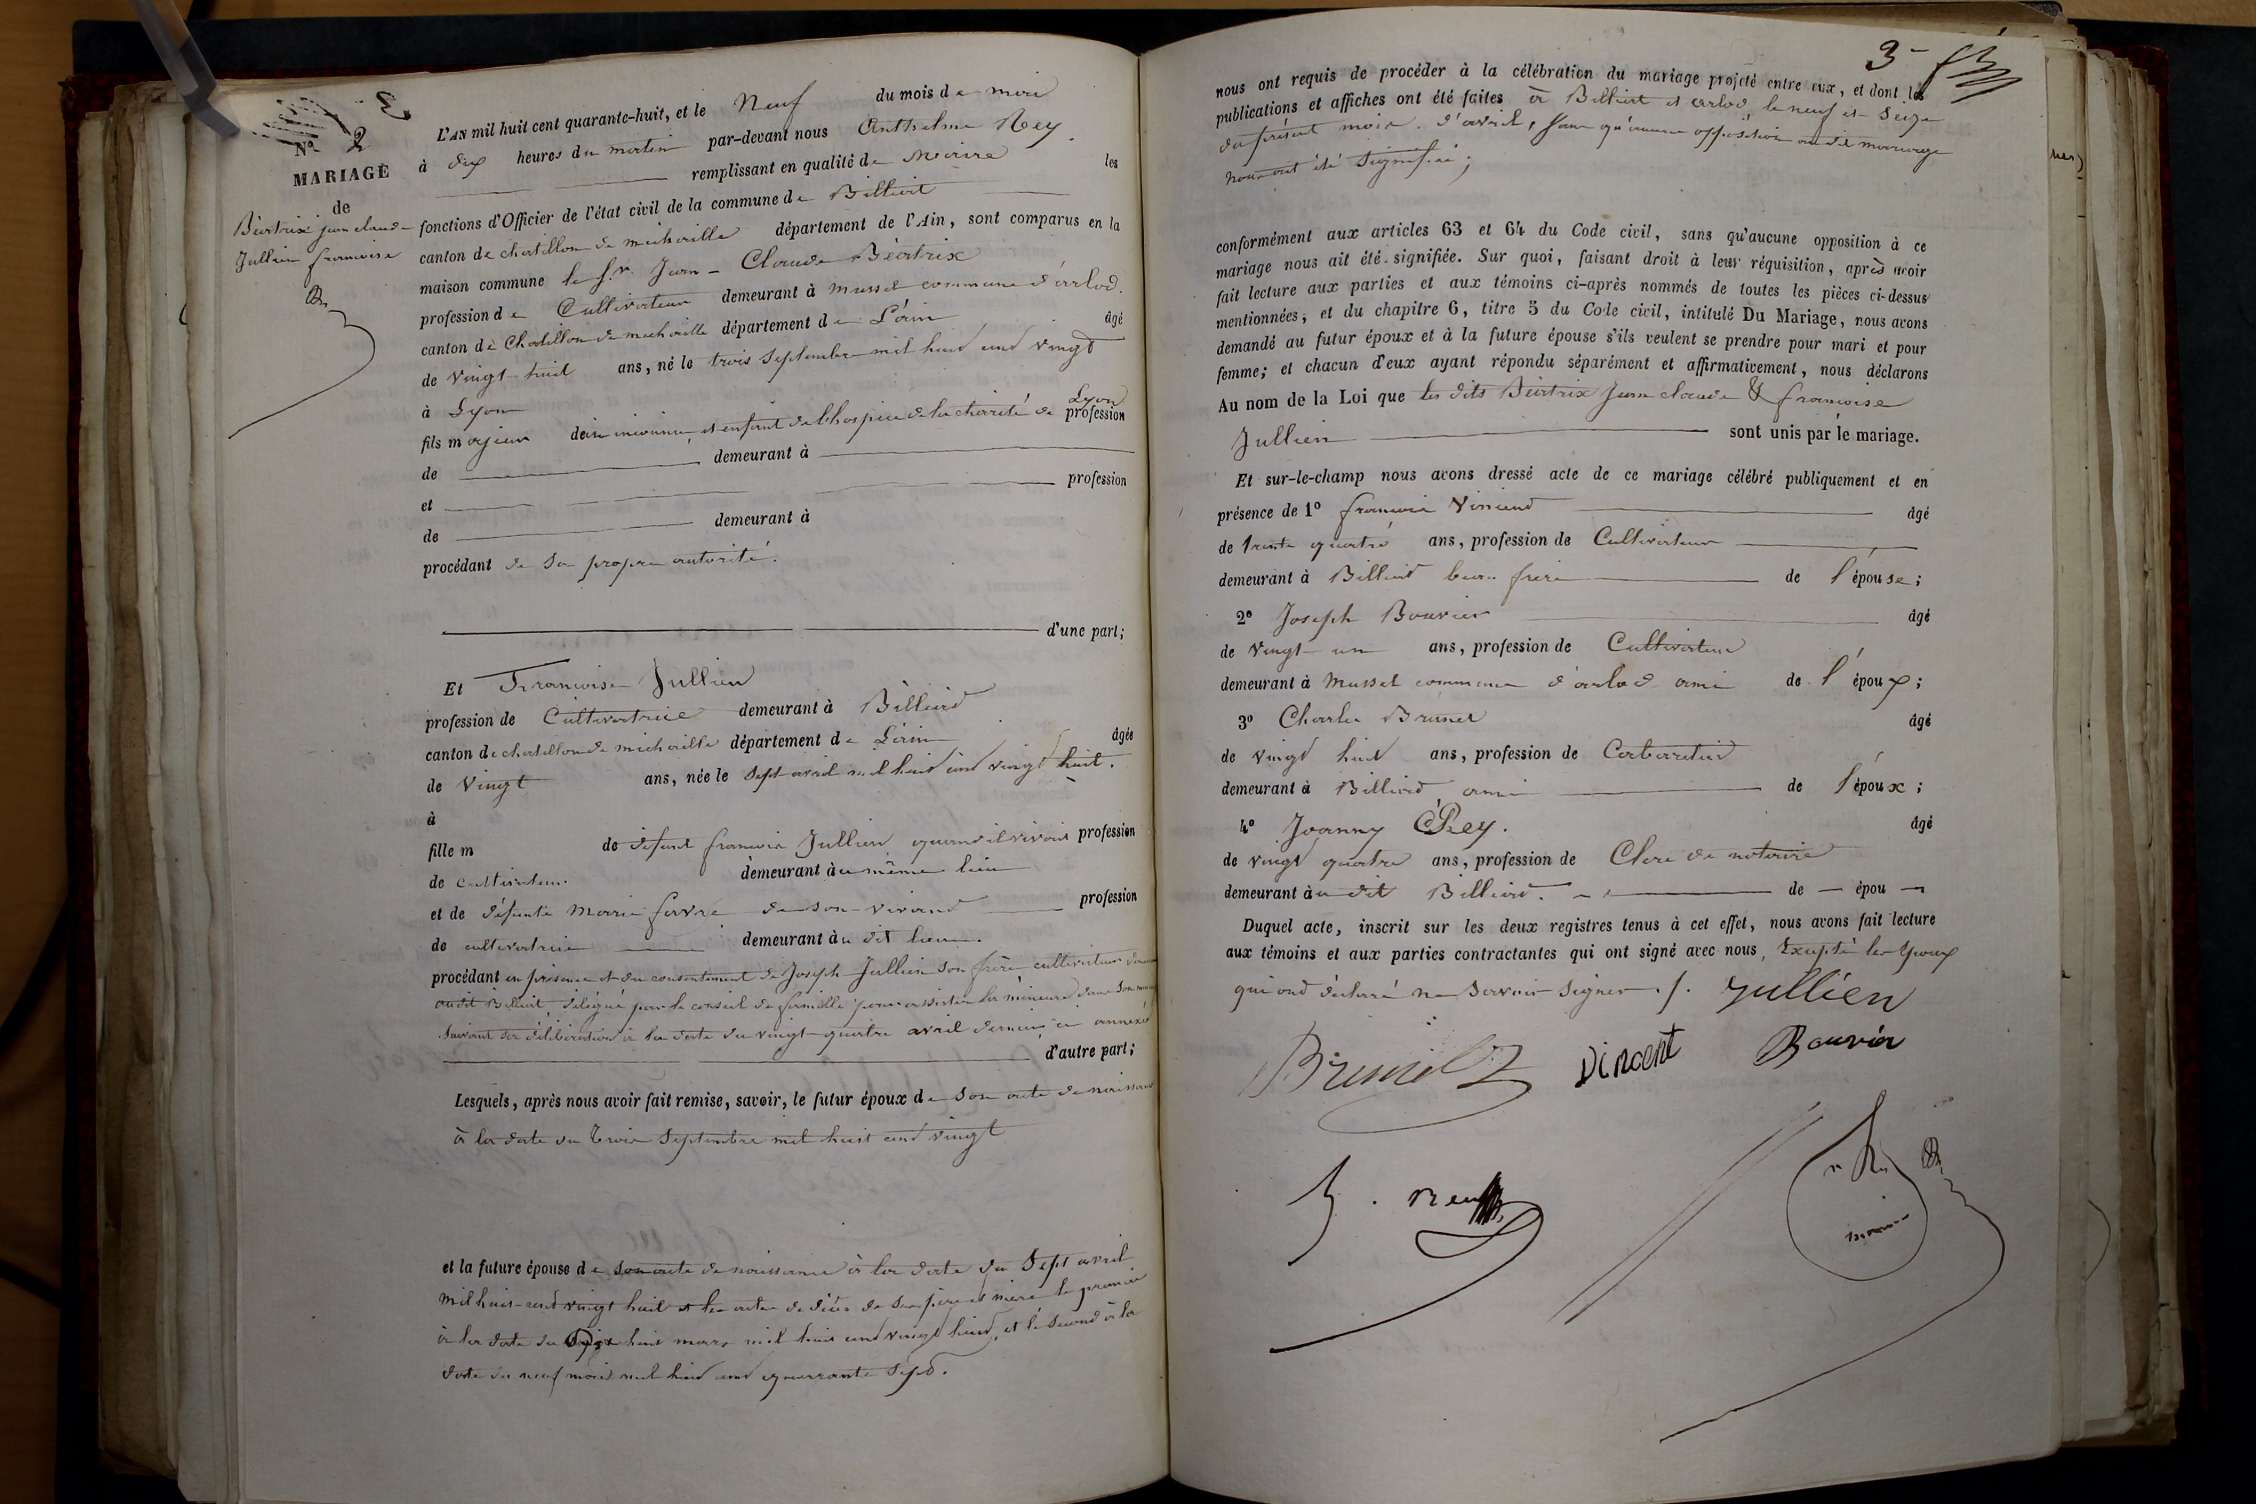 N° 2
MARIAGE
de
Béatrix jean claude
Jullien françoise
L'AN mil huit cent quarante-huit, et le Neuf du mois de mai
à dix heures du matin par-devant nous Anthelme Rey
remplissant en qualité de Maire les
fonctions d'Officier de l'état civil de la commune de Billiat
canton de chatillon de michaille département de l'Ain, sont comparus en la
maison commune le Sr. Jean-Claude Béatrix
profession de Cultivateur demeurant à Mussel commune d'arlod.
canton de Chatillon de michaille département de L'ain âgé
de vingt-huit ans, né le trois Septembre mil huit cent vingt
à Lyon
fils majeur de inconnu, et enfant de l'hospice de la charité de Lyon profession
de demeurant à
et profession
de demeurant à
procédant de sa propre autorité.
d'une part;
Et Françoise Jullien
profession de Cultivatrice demeurant à Billiat
canton de chatillon de michaille département de L'ain âgée
de Vingt ans, née le Sept avril mil huit cent vingt huit.
à
fille m de défunt françois Jullien quand il vivait profession
de cultivateur demeurant au même lieu
et de défunte Marie favre de son vivant profession
de cultivatrice demeurant au dit lieu.
procédant en présence et du consentement de Joseph Jullien son frère cultivateur
audit Billiat, délégué par le conseil de famille pour assister la mineure dans son
suivant sa délibération à la date du vingt-quatre avril dernier ci annexée
d'autre part;
Lesquels, après nous avoir fait remise, savoir, le futur époux de son acte de naissance
à la date du trois Septembre mil huit cent vingt
et la future épouse de son acte de naissance à la date du Sept avril
mil huit-cent vingt huit et les actes de décès de ses père et mère le premier
à la date du dix huit mars mil huit cent vingt huit, et le second à la
date du neuf mai mil huit cent quarante sept.
3
nous ont requis de procéder à la célébration du mariage projeté entre eux, et dont les
publications et affiches ont été faites à Billiat et arlod le neuf et Seize
du présent mois d'avril, sans qu'aucune opposition au dit mariage
nous ait été signifiée;
conformément aux articles 63 et 64 du Code civil, sans qu'aucune opposition à ce
mariage nous ait été signifiée. Sur quoi, faisant droit à leur réquisition, après avoir
fait lecture aux parties et aux témoins ci-après nommés de toutes les pièces ci-dessus
mentionnées, et du chapitre 6, titre 5 du Code civil, intitulé Du Mariage, nous avons
demandé au futur époux et à la future épouse s'ils veulent se prendre pour mari et pour
femme; et chacun d'eux ayant répondu séparément et affirmativement, nous déclarons
Au nom de la Loi que les dits Béatrix Jean claude & françoise
Jullien sont unis par le mariage.
Et sur-le-champ nous avons dressé acte de ce mariage célébré publiquement et en
présence de 1° françois Vincent âgé
de trente quatre ans, profession de Cultivateur
demeurant à Billiat beau frère de l'épouse;
2° Joseph Bouvier âgé
de vingt-un ans, profession de Cultivateur
demeurant à Mussel commune d'arlod ami de l'époux;
3° Charles Brunet âgé
de vingt huit ans, profession de Cabaretier
demeurant à Billiat ami de l'époux;
4° Joanny Rey. âgé
de vingt quatre ans, profession de Clerc de notaire
demeurant au dit Billiat. de — épou —
Duquel acte, inscrit sur les deux registres tenus à cet effet, nous avons fait lecture
aux témoins et aux parties contractantes qui ont signé avec nous, Excepté les époux
qui ont déclaré ne savoir signer ./. Jullien
Brunet Vincent Bouvier
J. Rey
maire